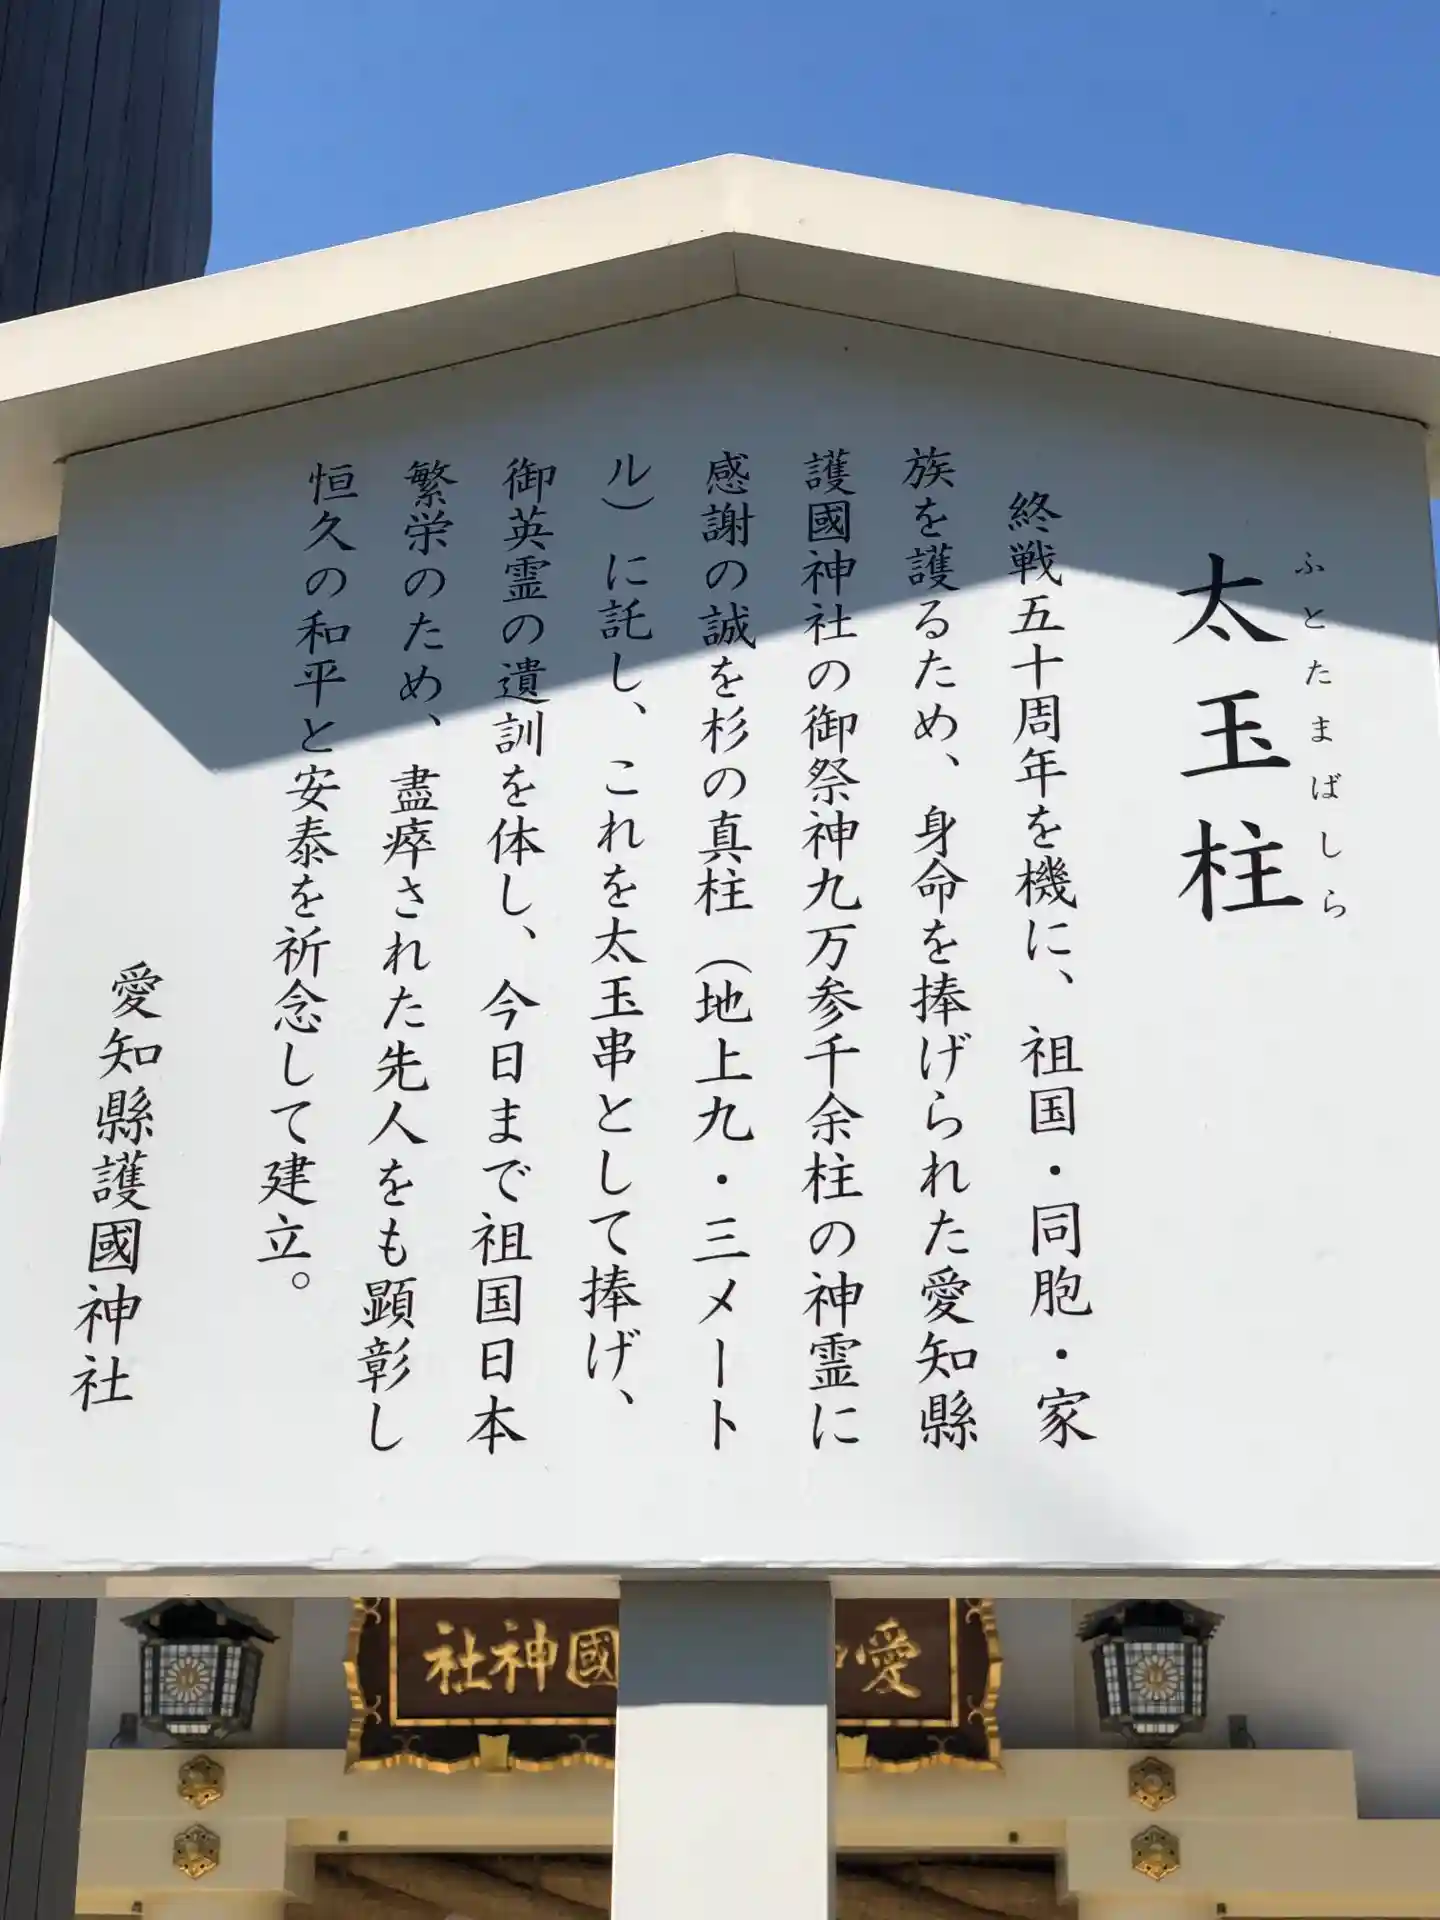 太玉柱
ふとたまばしら
終戦五十周年を機に、祖国・同胞・家
族を護るため、身命を捧げられた愛知縣
護國神社の御祭神九万参千余柱の神霊に
感謝の誠を杉の真柱（地上九・三メート
ル）に託し、これを太玉串として捧げ、
御英霊の遺訓を体し、今日まで祖国日本
繁栄のため、盡瘁された先人をも顕彰し
恒久の和平と安泰を祈念して建立。
愛知縣護國神社
愛
國神社